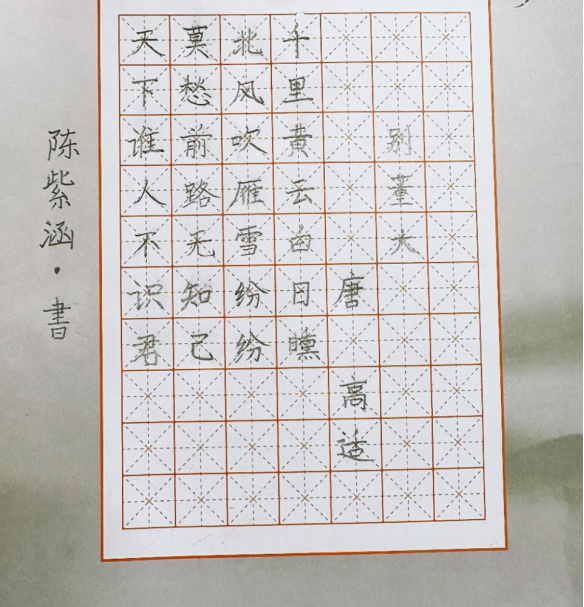 别董大
唐 高适
千里黄云白日曛
北风吹雁雪纷纷
莫愁前路无知己
天下谁人不识君
陈紫涵·書